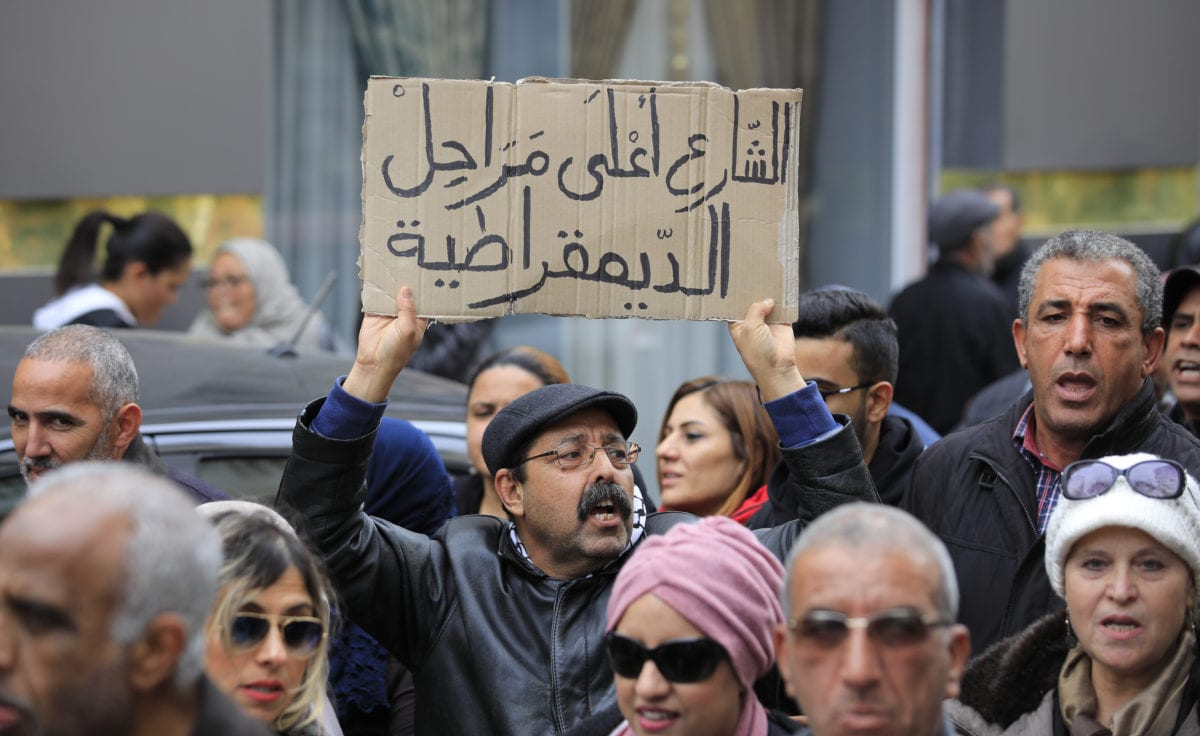 الشّارع أعْلَى مَرَاحِلْ
الدّيمقراطية